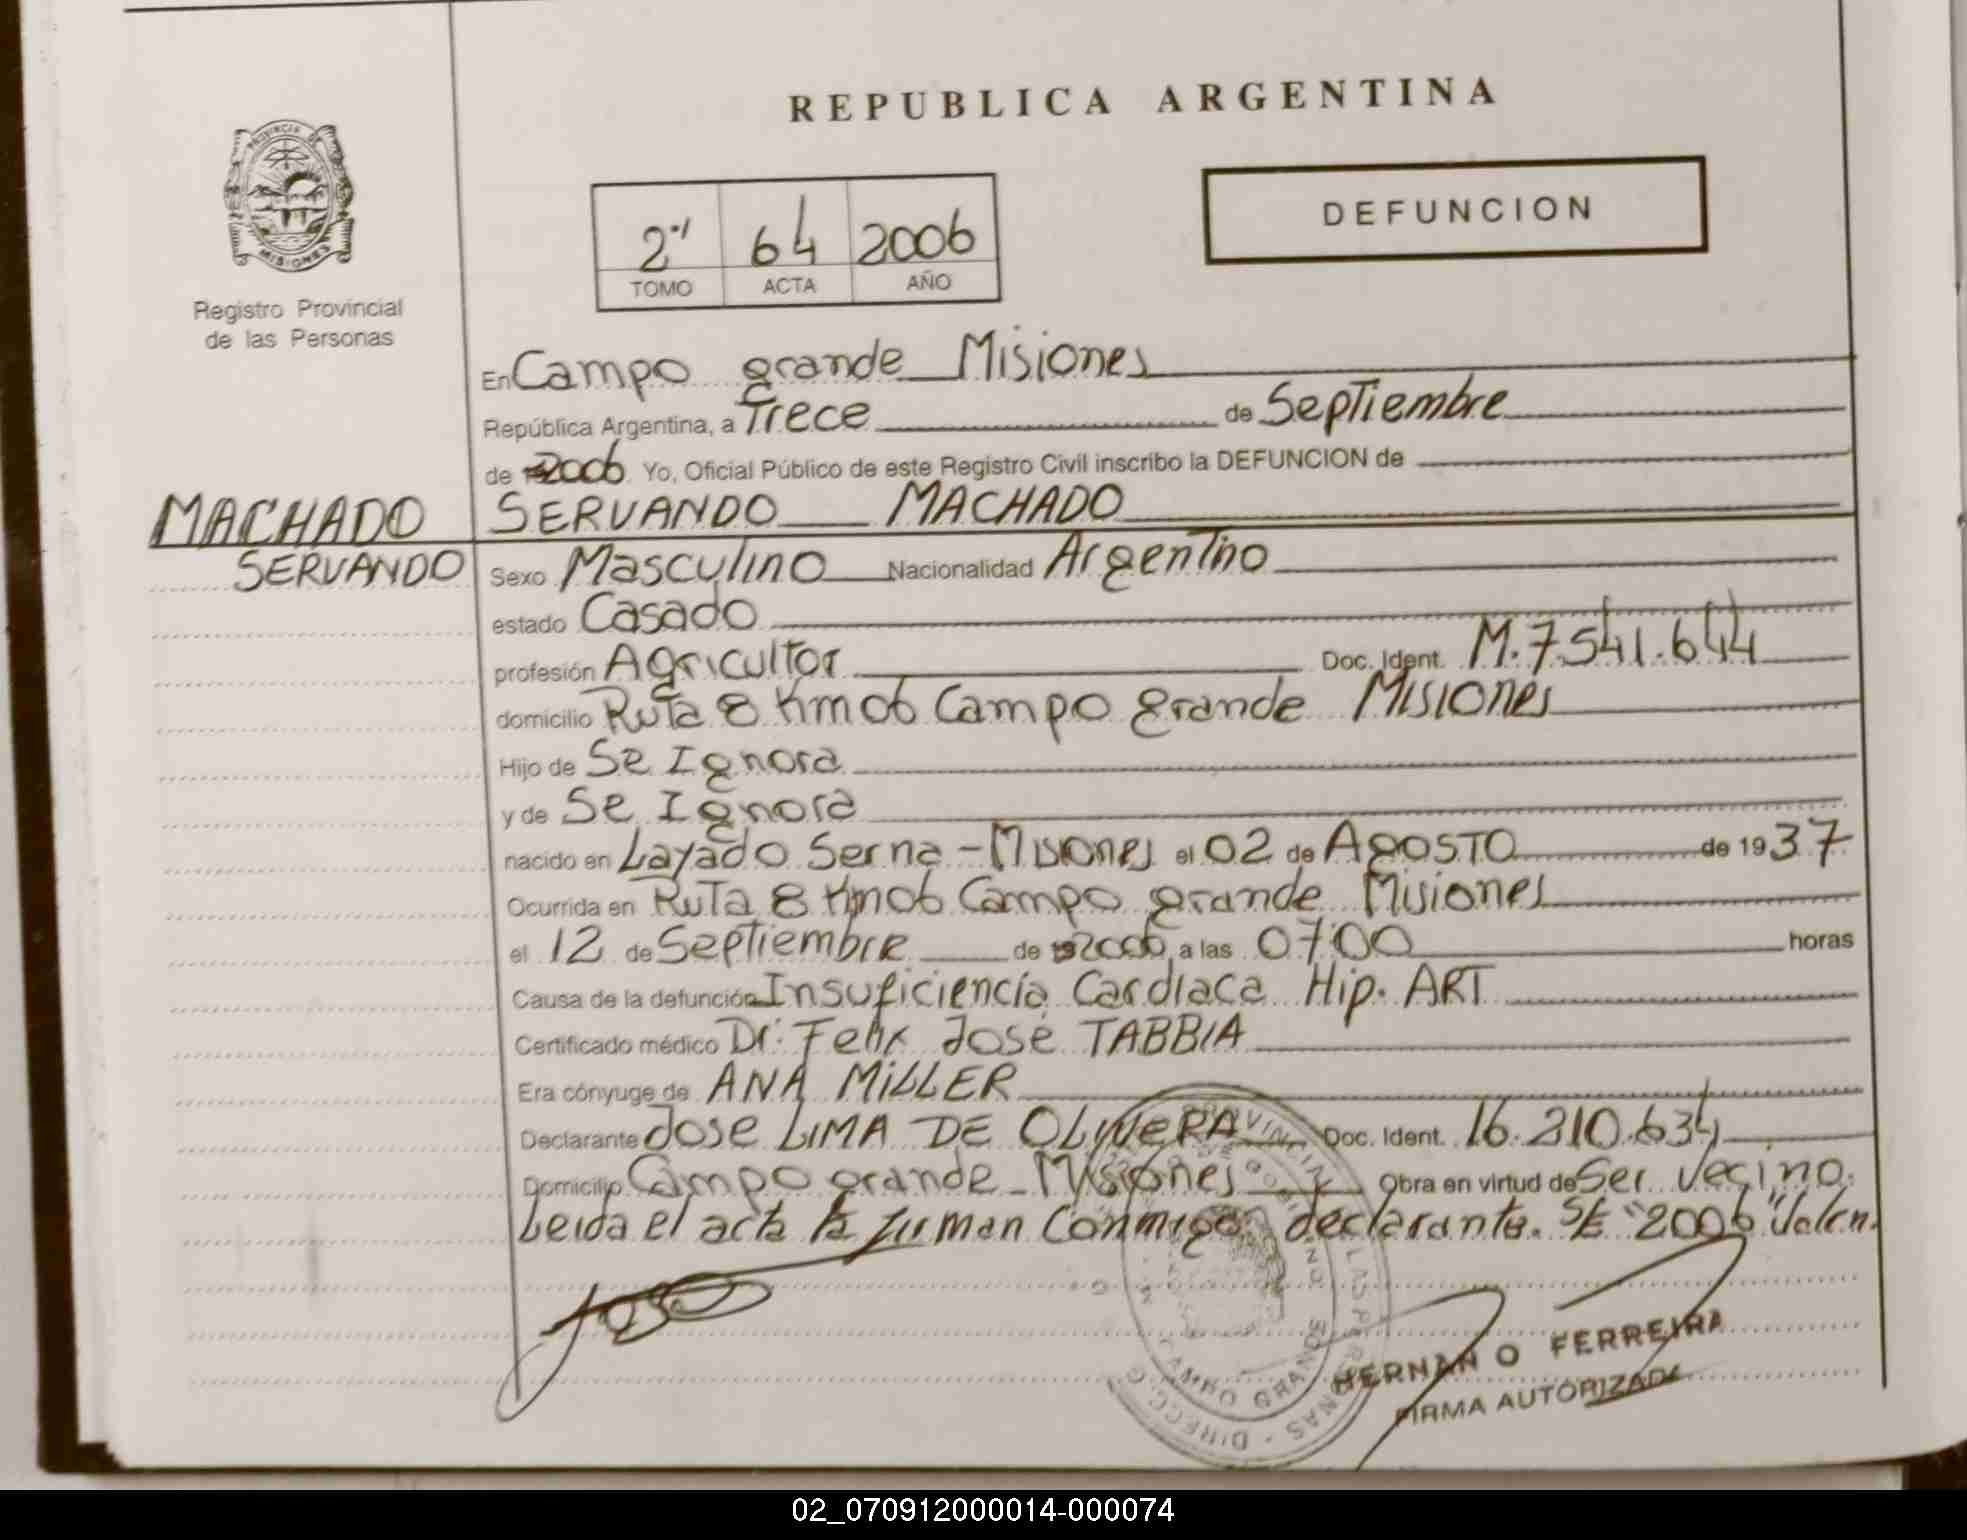 REPUBLICA ARGENTINA
PROVINCIA DE
MISIONES
Registro Provincial
de las Personas
2º 64 2006
TOMO ACTA AÑO
DEFUNCION
En Campo grande Misiones
República Argentina, a Trece de Septiembre
de 2006 Yo, Oficial Público de este Registro Civil inscribo la DEFUNCION de
MACHADO SERVANDO MACHADO
SERVANDO Sexo Masculino Nacionalidad Argentino
estado Casado
profesión Agricultor Doc. Ident. M.7.541.644
domicilio Ruta 8 Km 06 Campo grande Misiones
Hijo de Se Ignora
y de Se Ignora
nacido en Layado Serna - Misiones el 02 de Agosto de 1937
Ocurrida en Ruta 8 Km 06 Campo grande Misiones
el 12 de Septiembre de 2006 a las 07:00 horas
Causa de la defunción Insuficiencia Cardiaca Hip. ART
Certificado médico Dr. Felix José TABBIA
Era cónyuge de ANA MiLLER
Declarante Jose LIMA DE OLIVERA Doc. Ident. 16.210.634
Domicilio Campo grande - Misiones Obra en virtud de Ser Vecino.
Leida el acta la firman Conmigo declarante. S/E "2006" Valen.
CAMPO GRANDE
HERNAN O FERREIRA
FIRMA AUTORIZADA
02_070912000014-000074